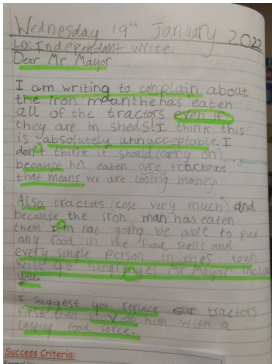 Wednesday 19th January 2022
LO: Independent write
Dear Mr Mayor
I am writing to conplain about
the iron man he has eaten
all of the tractors even if
they are in sheds! I think this
is absolutely unnacceptable. I
don't think it should (carry on)
because he's eaten are tractors
that means we are losing money
Also tractors (cose very much) and
because the iron man has eaten
them I'm not going be able to put
any food in the food
every single person in this town
will go hungry Mr Mayor
you.
I suggest you replace our tractors
first then him with a
lasting food sorce.
Success Criteria: